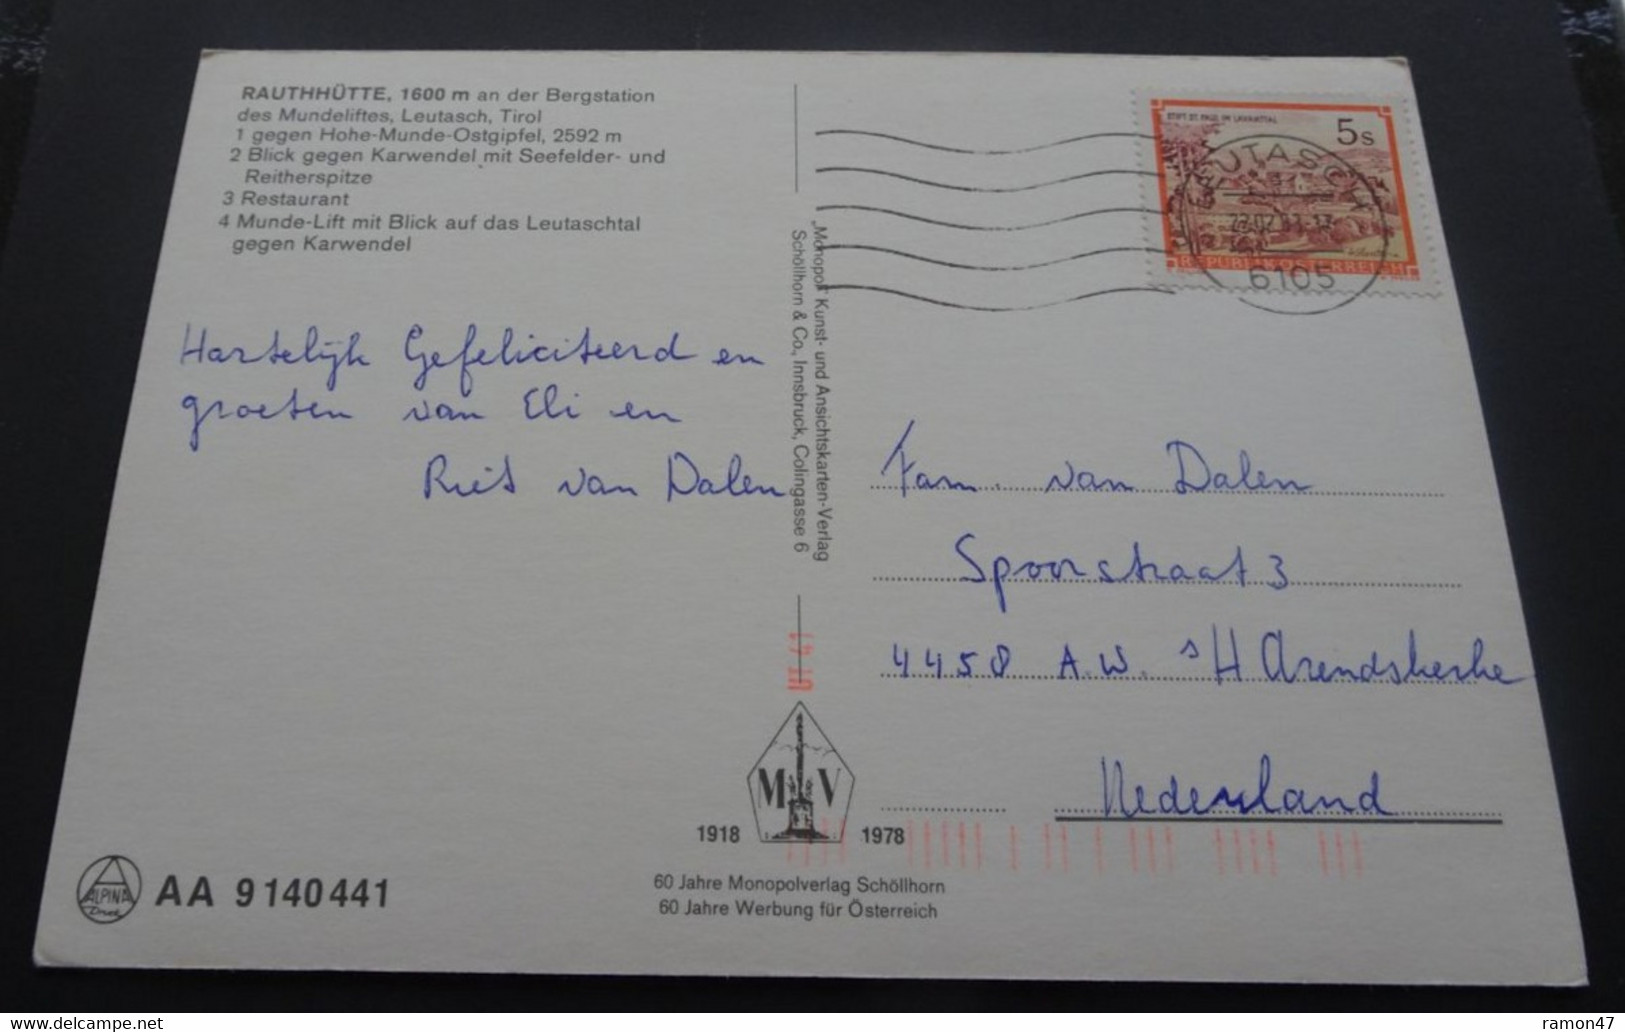 RAUTHHÜTTE, 1600 m an der Bergstation
des Mundeliftes, Leutasch, Tirol
1 gegen Hohe-Munde-Ostgipfel, 2592 m
2 Blick gegen Karwendel mit Seefelder- und
Reitherspitze
3 Restaurant
4 Munde-Lift mit Blick auf das Leutaschtal
gegen Karwendel
Hartelijk Gefeliciteerd en
groeten van Eli en
Riet van Dalen
„Monopol" Kunst- und Ansichtskarten-Verlag
Schöllhorn & Co., Innsbruck, Colingasse 6
STIFT ST. PAUL IM LAVANTTAL
5 s
REPUBLIK ÖSTERREICH
LEUTASCH
6105
Fam. van Dalen
Spoorstraat 3
4458 A.W. 's H Arendskerke
Nederland
M V
1918 1978
60 Jahre Monopolverlag Schöllhorn
60 Jahre Werbung für Österreich
ALPINA
Druck
AA 9 140 441
ramon47